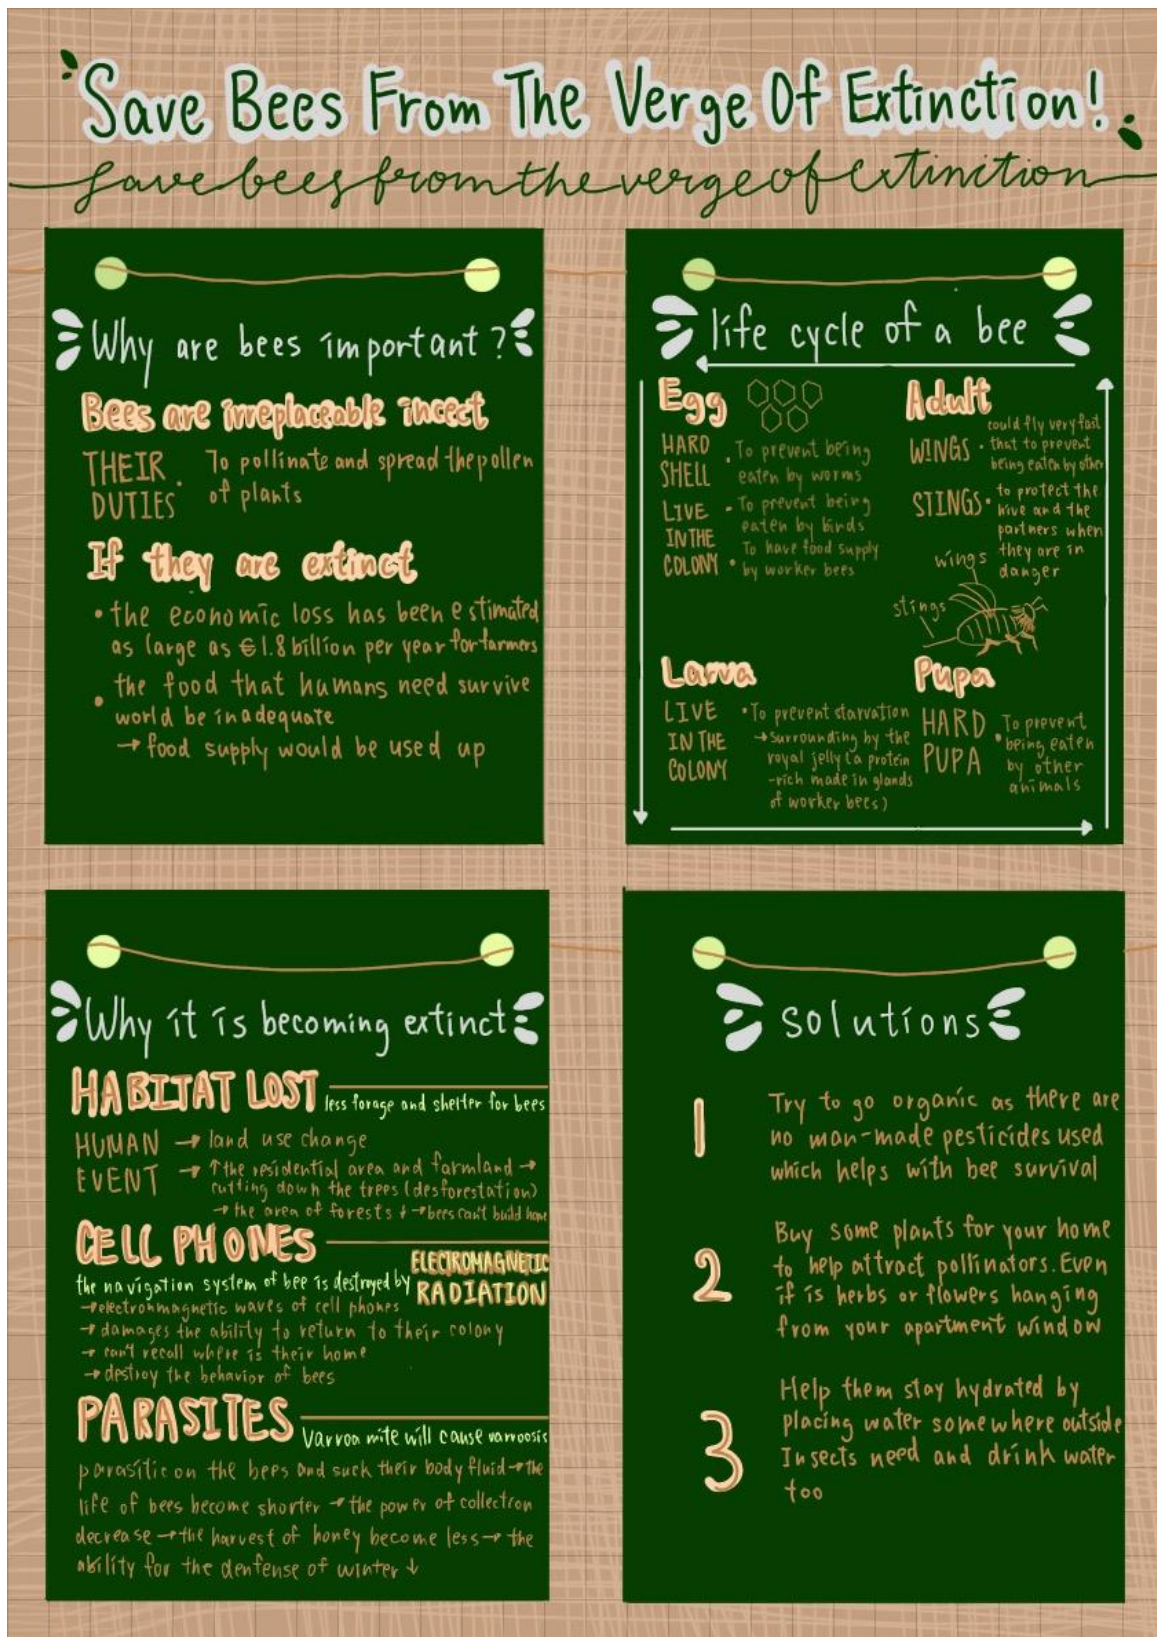 Save Bees From The Verge Of Extinction!
save bees from the verge of extinction
Why are bees important?
Bees are irreplaceable incect
THEIR DUTIES
To pollinate and spread the pollen
of plants
If they are extinct
• the economic loss has been estimated
as large as €1.8 billion per year for farmers
• the food that humans need survive
world be inadequate
→ food supply would be used up
life cycle of a bee
Egg
HARD SHELL
• To prevent being
eaten by worms
LIVE IN THE COLONY
• To prevent being
eaten by birds
• To have food supply
by worker bees
Adult
WINGS
• could fly very fast
that to prevent
being eaten by other
STINGS
• to protect the
hive and the
partners when
they are in
danger
wings
stings
Larva
LIVE
IN THE
COLONY
• To prevent starvation
→ surrounding by the
royal jelly (a protein
-rich made in glands
of worker bees)
Pupa
HARD
PUPA
• To prevent
being eaten
by other
animals
Why it is becoming extinct
HABITAT LOST
less forage and shelter for bees
HUMAN EVENT
→ land use change
→ ↑the residential area and farmland →
cutting down the trees (desforestation)
→ the area of forests ↓ → bees can't build home
CELL PHONES
the navigation system of bee is destroyed by
ELECTROMAGNETIC
RADIATION
→ electronmagnetic waves of cell phones
→ damages the ability to return to their colony
→ can't recall where is their home
→ destroy the behavior of bees
PARASITES
Varroa mite will cause varroosis
parasitic on the bees and suck their body fluid → the
life of bees become shorter → the power of collection
decrease → the harvest of honey become less → the
ability for the denfense of winter ↓
solutions
1
Try to go organic as there are
no man-made pesticides used
which helps with bee survival
2
Buy some plants for your home
to help attract pollinators. Even
if is herbs or flowers hanging
from your apartment window
3
Help them stay hydrated by
placing water somewhere outside
Insects need and drink water
too